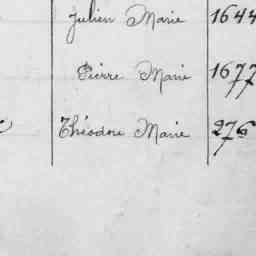 Julien Marie 1644
Pierre Marie 1677
Théodore Marie 276